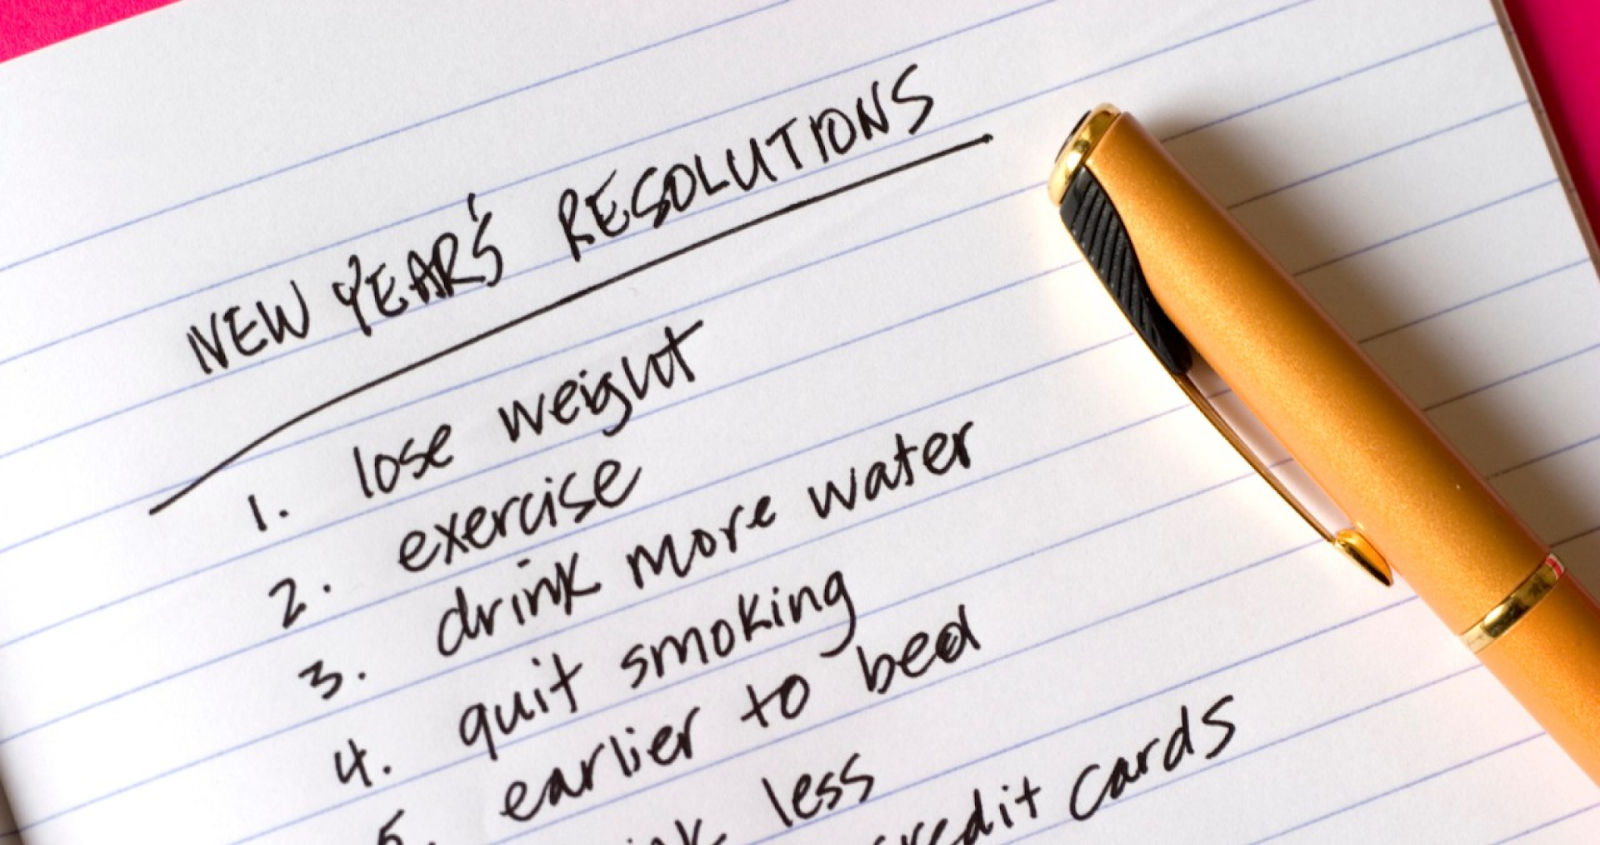 NEW YEAR'S RESOLUTIONS
1. lose weight
2. exercise
3. drink more water
4. quit smoking
5. earlier to bed
less
credit cards